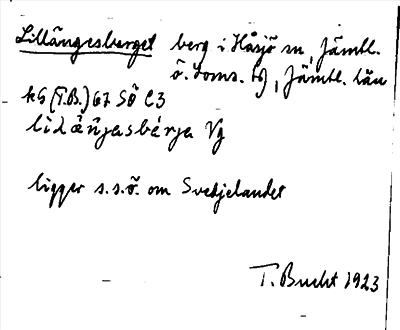 Lillängesberget berg i Håsjö sn, Jämtl.
ö. doms. tg, Jämtl. län
kG (T.B.) 67 SÖ C3
lìlǻn̄jasbǽrja Vg
ligger s.s.ö. om Svedjelandet
T. Bucht 1923